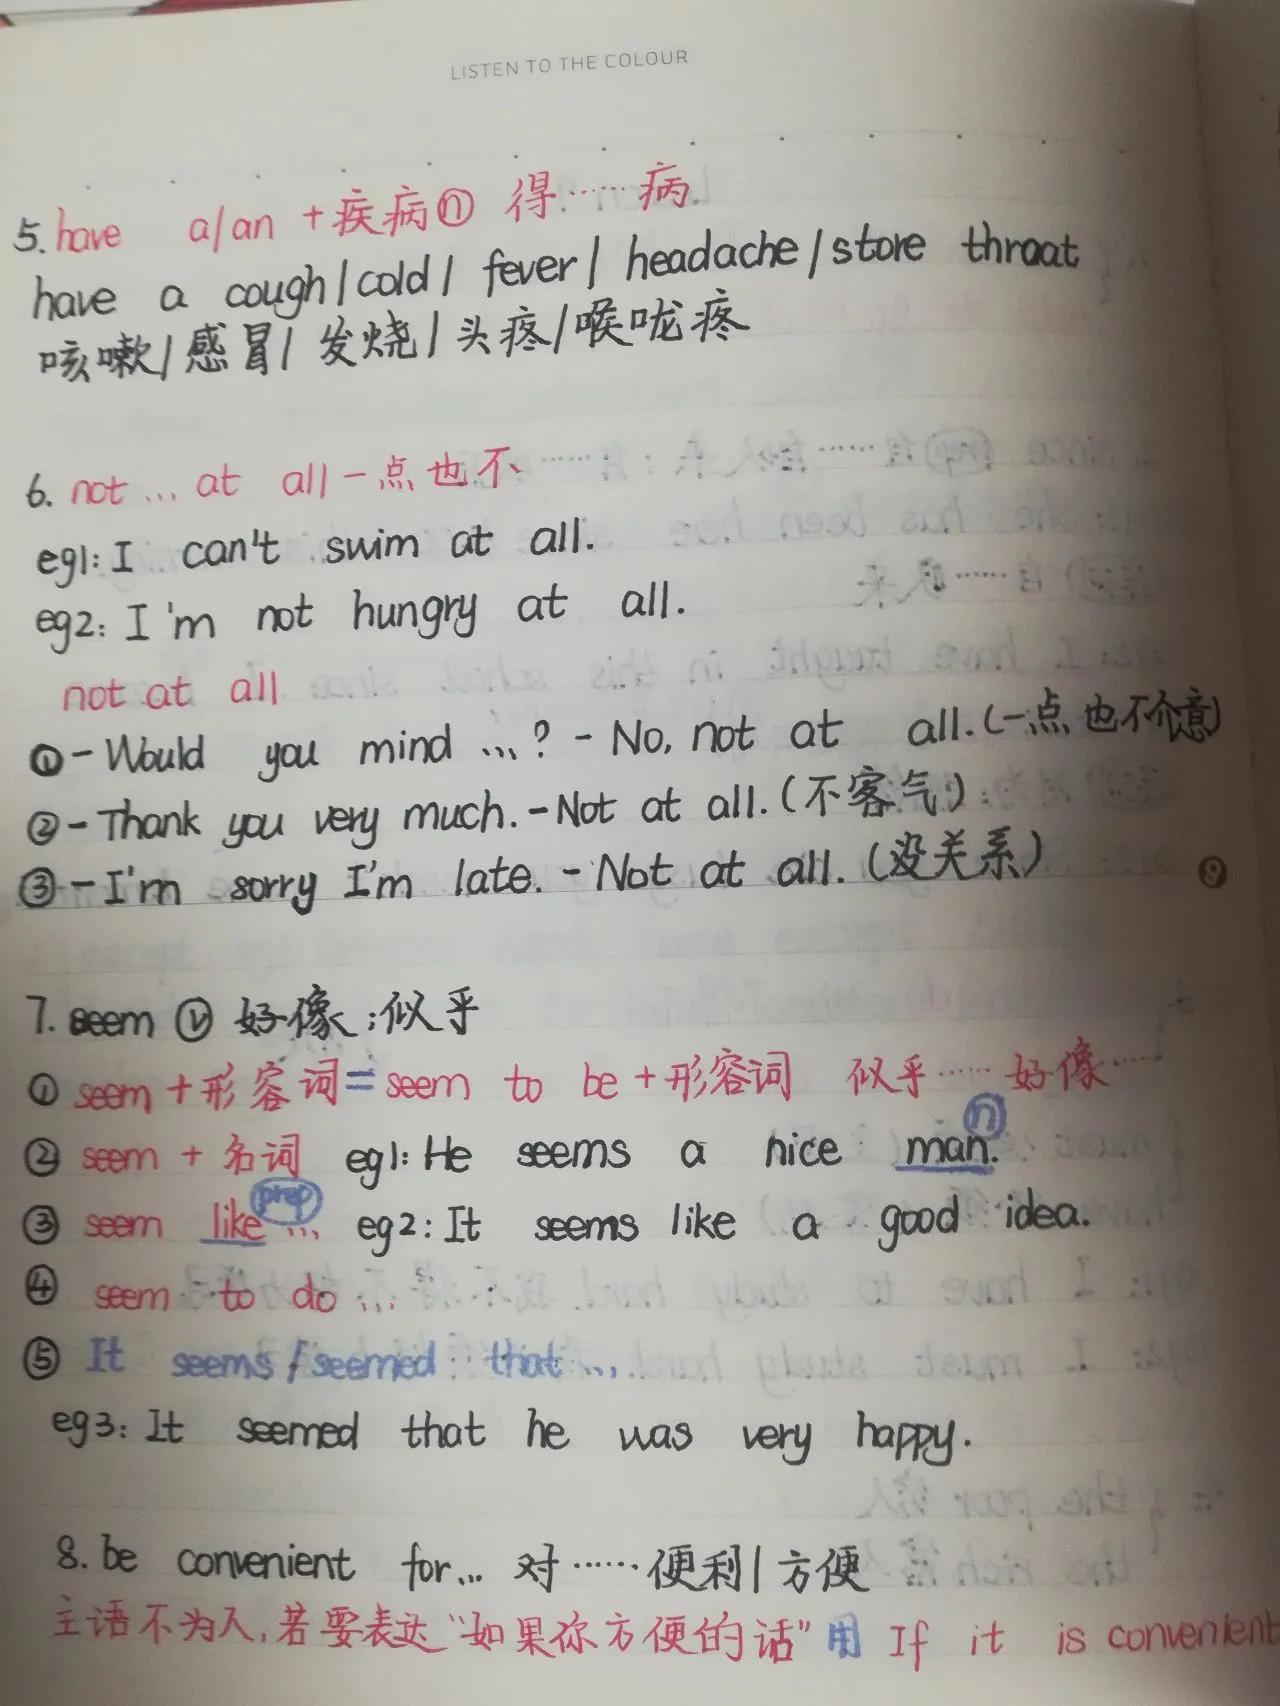 LISTEN TO THE COLOUR
5. have a/an +疾病ⓝ 得……病
have a cough/cold/ fever/ headache/store throat
咳嗽/感冒/ 发烧/头疼/喉咙疼
6. not ... at all 一点也不
eg1: I can't swim at all.
eg2: I'm not hungry at all.
not at all
①- Would you mind ...? - No, not at all.(一点也不介意)
②- Thank you very much. -Not at all.(不客气)
③-I'm sorry I'm late. -Not at all.(没关系)
7. seem ⓥ 好像;似乎
① seem+形容词=seem to be+形容词 似乎……好像……
② seem + 名词 eg1: He seems a nice man. ⓝ
③ seem like ... prep eg2: It seems like a good idea.
④ seem to do ...
⑤ It seems/seemed that ...
eg3: It seemed that he was very happy.
8. be convenient for... 对……便利/方便
主语不为人,若要表达"如果你方便的话"用 If it is convenient